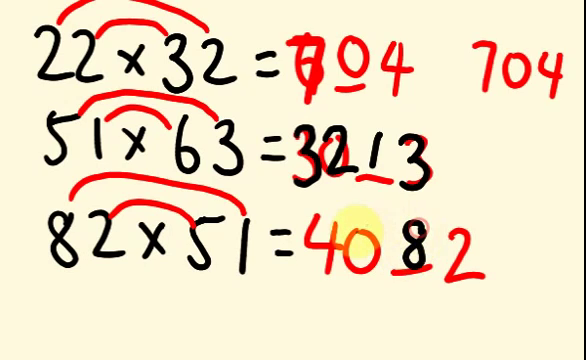 22 × 32 = 704 704
51 × 63 = 3213
82 × 51 = 4082